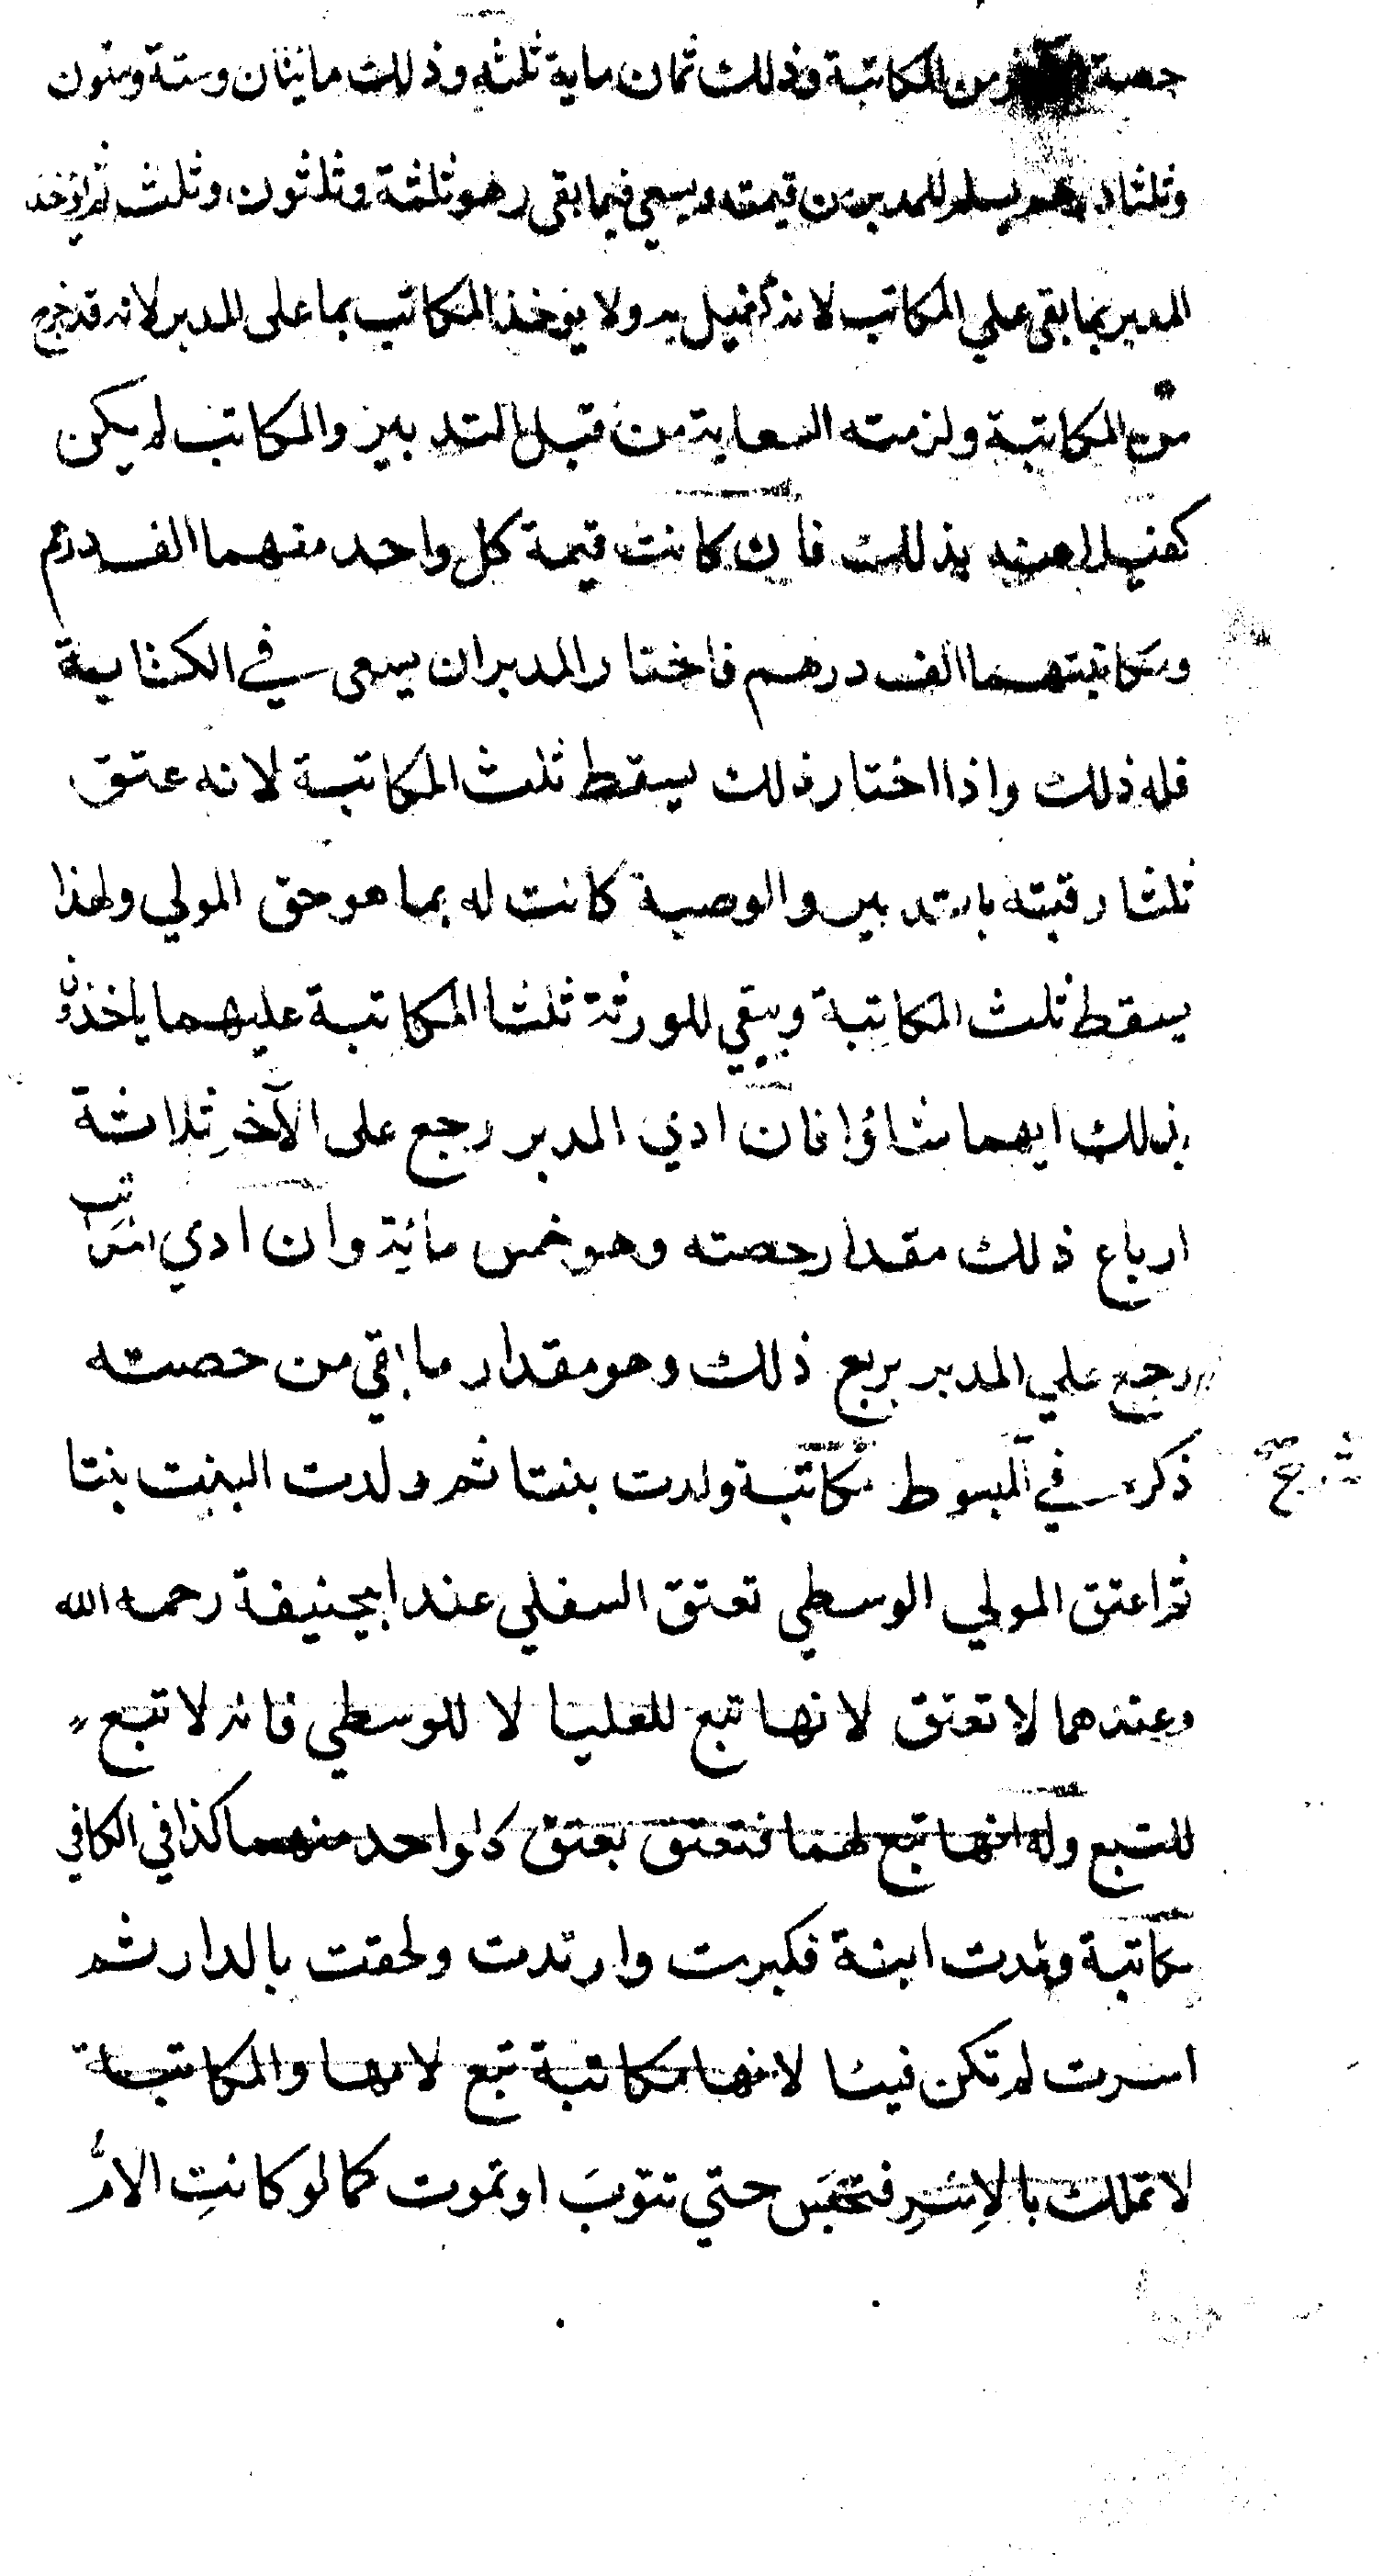 حصة من المكاتبة وذلك ثمان ماية ثلثه وذلك مايتان وستة وستون
وثلثا درهم يسلم للمدبر من قيمته ويسعي فيما بقي وهو ثلثة وثلثون وثلث ثم يؤخذ
المدبر بما بقي علي المكاتب لانه كفيل به ولا يوخذ المكاتب بما على المدبر لانه قد خرج
من المكاتبة ولزمته السعاية من قبل التدبير والمكاتب لم يكن
كفيلا عنه بذلك فان كانت قيمة كل واحد منهما الف درهم
ومكاتبتهما الف درهم فاختار المدبر ان يسعى في الكتابة
فله ذلك واذا اختار ذلك يسقط ثلث المكاتبة لانه عتق
ثلثا رقبته بالتدبير والوصية كانت له بما هو حق المولي ولهذا
يسقط ثلث المكاتبة ويبقي للورثة ثلثا المكاتبة عليهما ياخذون
بذلك ايهما شاؤا فان ادي المدبر رجع على الآخر ثلاثة
ارباع ذلك مقدار حصته وهو خمس مائة وان ادي المكاتب
رجع علي المدبر بربع ذلك وهو مقدار ما بقي من حصته
ذكره في المبسوط مكاتبة ولدت بنتا ثم ولدت البنت بنتا
ثم اعتق المولي الوسطي تعتق السفلي عند ابيحنيفة رحمه الله
وعندهما لا تعتق لانها تبع للعليا لا للوسطي فانه لا تبع
للتبع وله انها تبع لهما فتعتق بعتق كل واحد منهما كذا في الكافي
مكاتبة ولدت ابنة فكبرت وارتدت ولحقت بالدار ثم
اسرت لم تكن فيئا لانها مكاتبة تبع لامها والمكاتبة
لا تملك بالاسر فتحبس حتي تتوب او تموت كما لو كانت الام